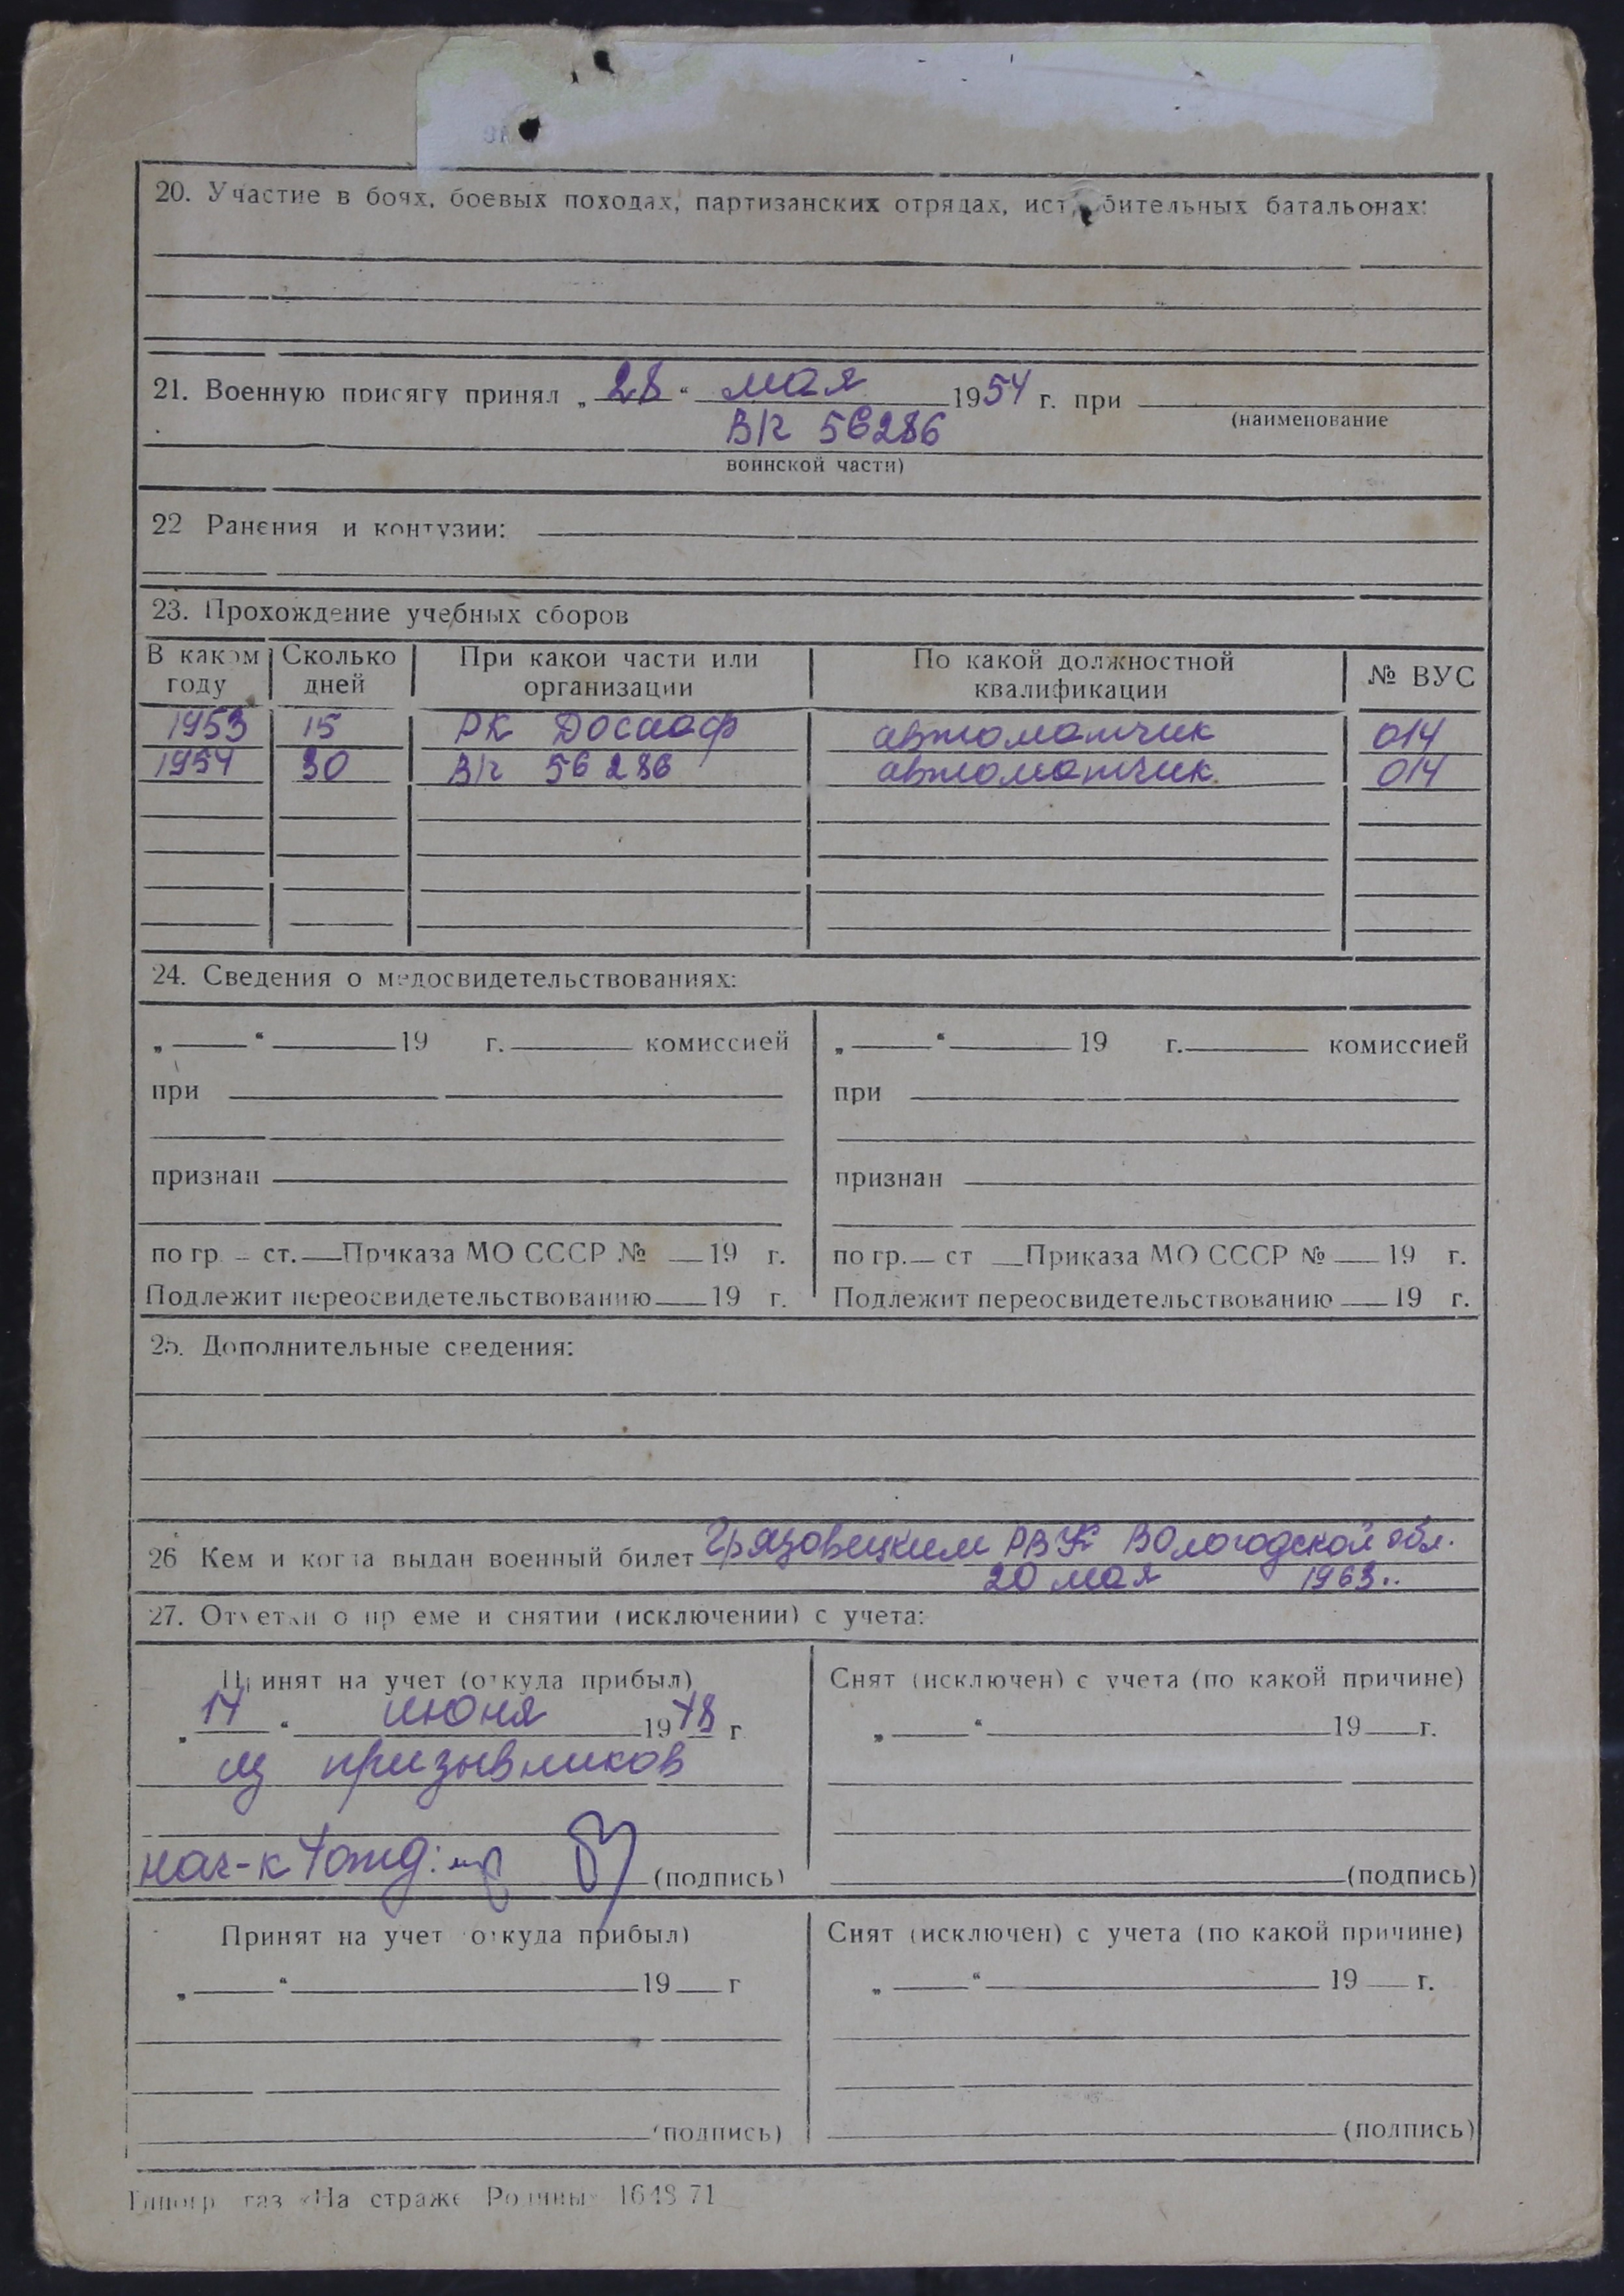 20. Участие в боях, боевых походах, партизанских отрядах, истребительных батальонах:
21. Военную присягу принял „28“ мая 1954 г. при
(наименование
В/ч 56286
воинской части)
22 Ранения и контузии:
23. Прохождение учебных сборов
В каком году Сколько дней При какой части или организации По какой должностной квалификации № ВУС
1953 15 РК Досааф автоматчик 014
1954 30 В/ч 56286 автоматчик. 014
24. Сведения о медосвидетельствованиях:
„ “ 19 г. комиссией „ “ 19 г. комиссией
при при
признан признан
по гр. ст. Приказа МО СССР № 19 г. по гр. ст Приказа МО СССР № 19 г.
Подлежит переосвидетельствованию 19 г. Подлежит переосвидетельствованию 19 г.
25. Дополнительные сведения:
26 Кем и когда выдан военный билет Грязовецким РВК Вологодской обл.
20 мая 1963..
27. Отметки о приеме и снятии (исключении) с учета:
Принят на учет (откуда прибыл) Снят (исключен) с учета (по какой причине)
„14“ июня 1978 г „ “ 19 г.
из призывников
нач-к 4 отд: (подпись) (подпись)
Принят на учет откуда прибыл) Снят (исключен) с учета (по какой причине)
„ “ 19 г „ “ 19 г.
(подпись) (подпись)
Типогр газ «На страже Родины» 1648 71